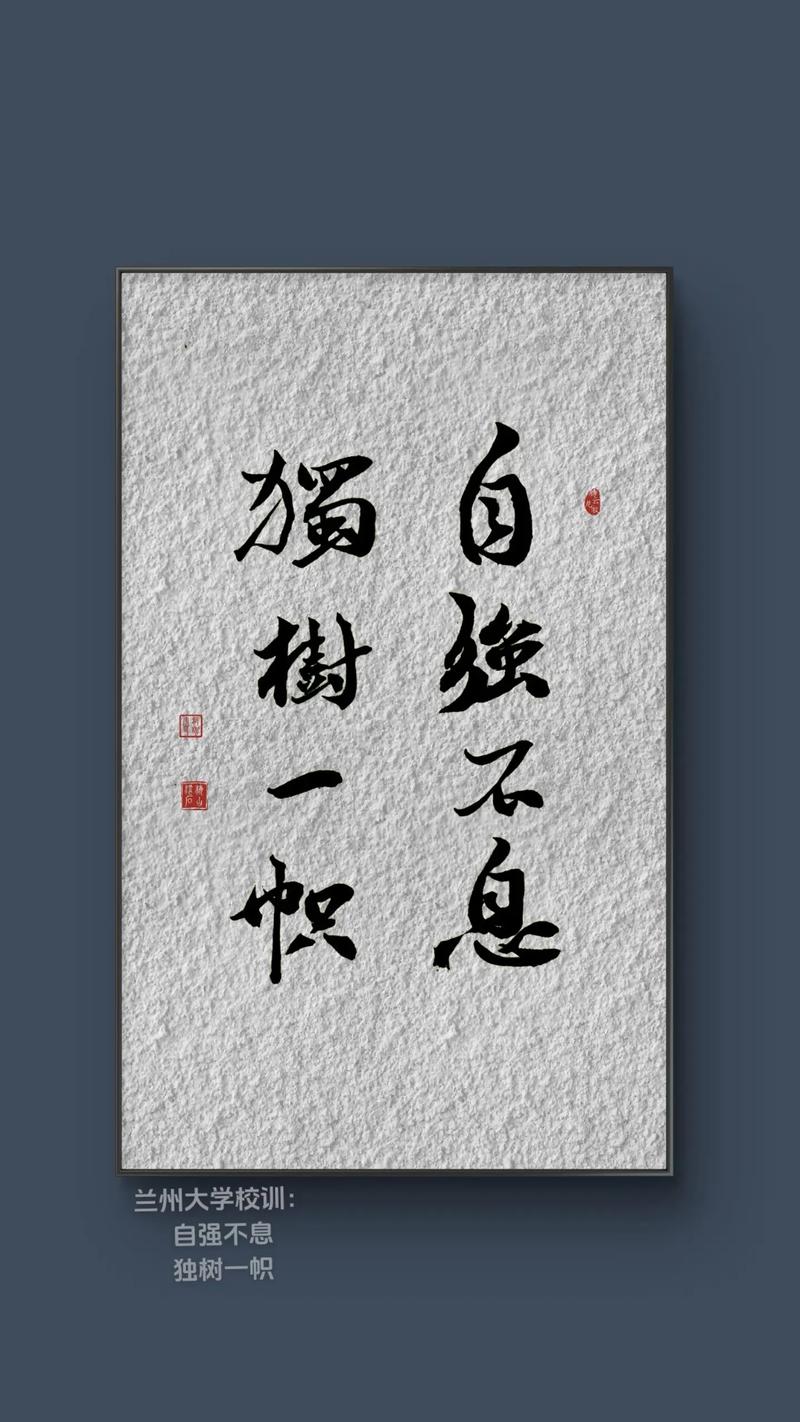 自強不息
獨樹一帜
兰州大学校训：
自强不息
独树一帜